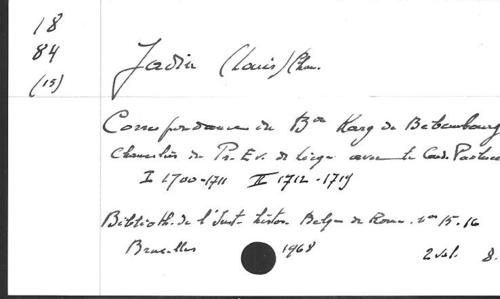 18
84
(15)
Jadin (Louis) Chan.
Correspondance du Bon Karg de Bebembourg
Chancelier du Pr. Ev. de Liège avec le Card. Paolucci
I 1700-1711 II 1712-1719
Biblioth. de l'Inst. histor. Belge de Rome. nos 15-16
Bruxelles 1968 2 vol. 8.